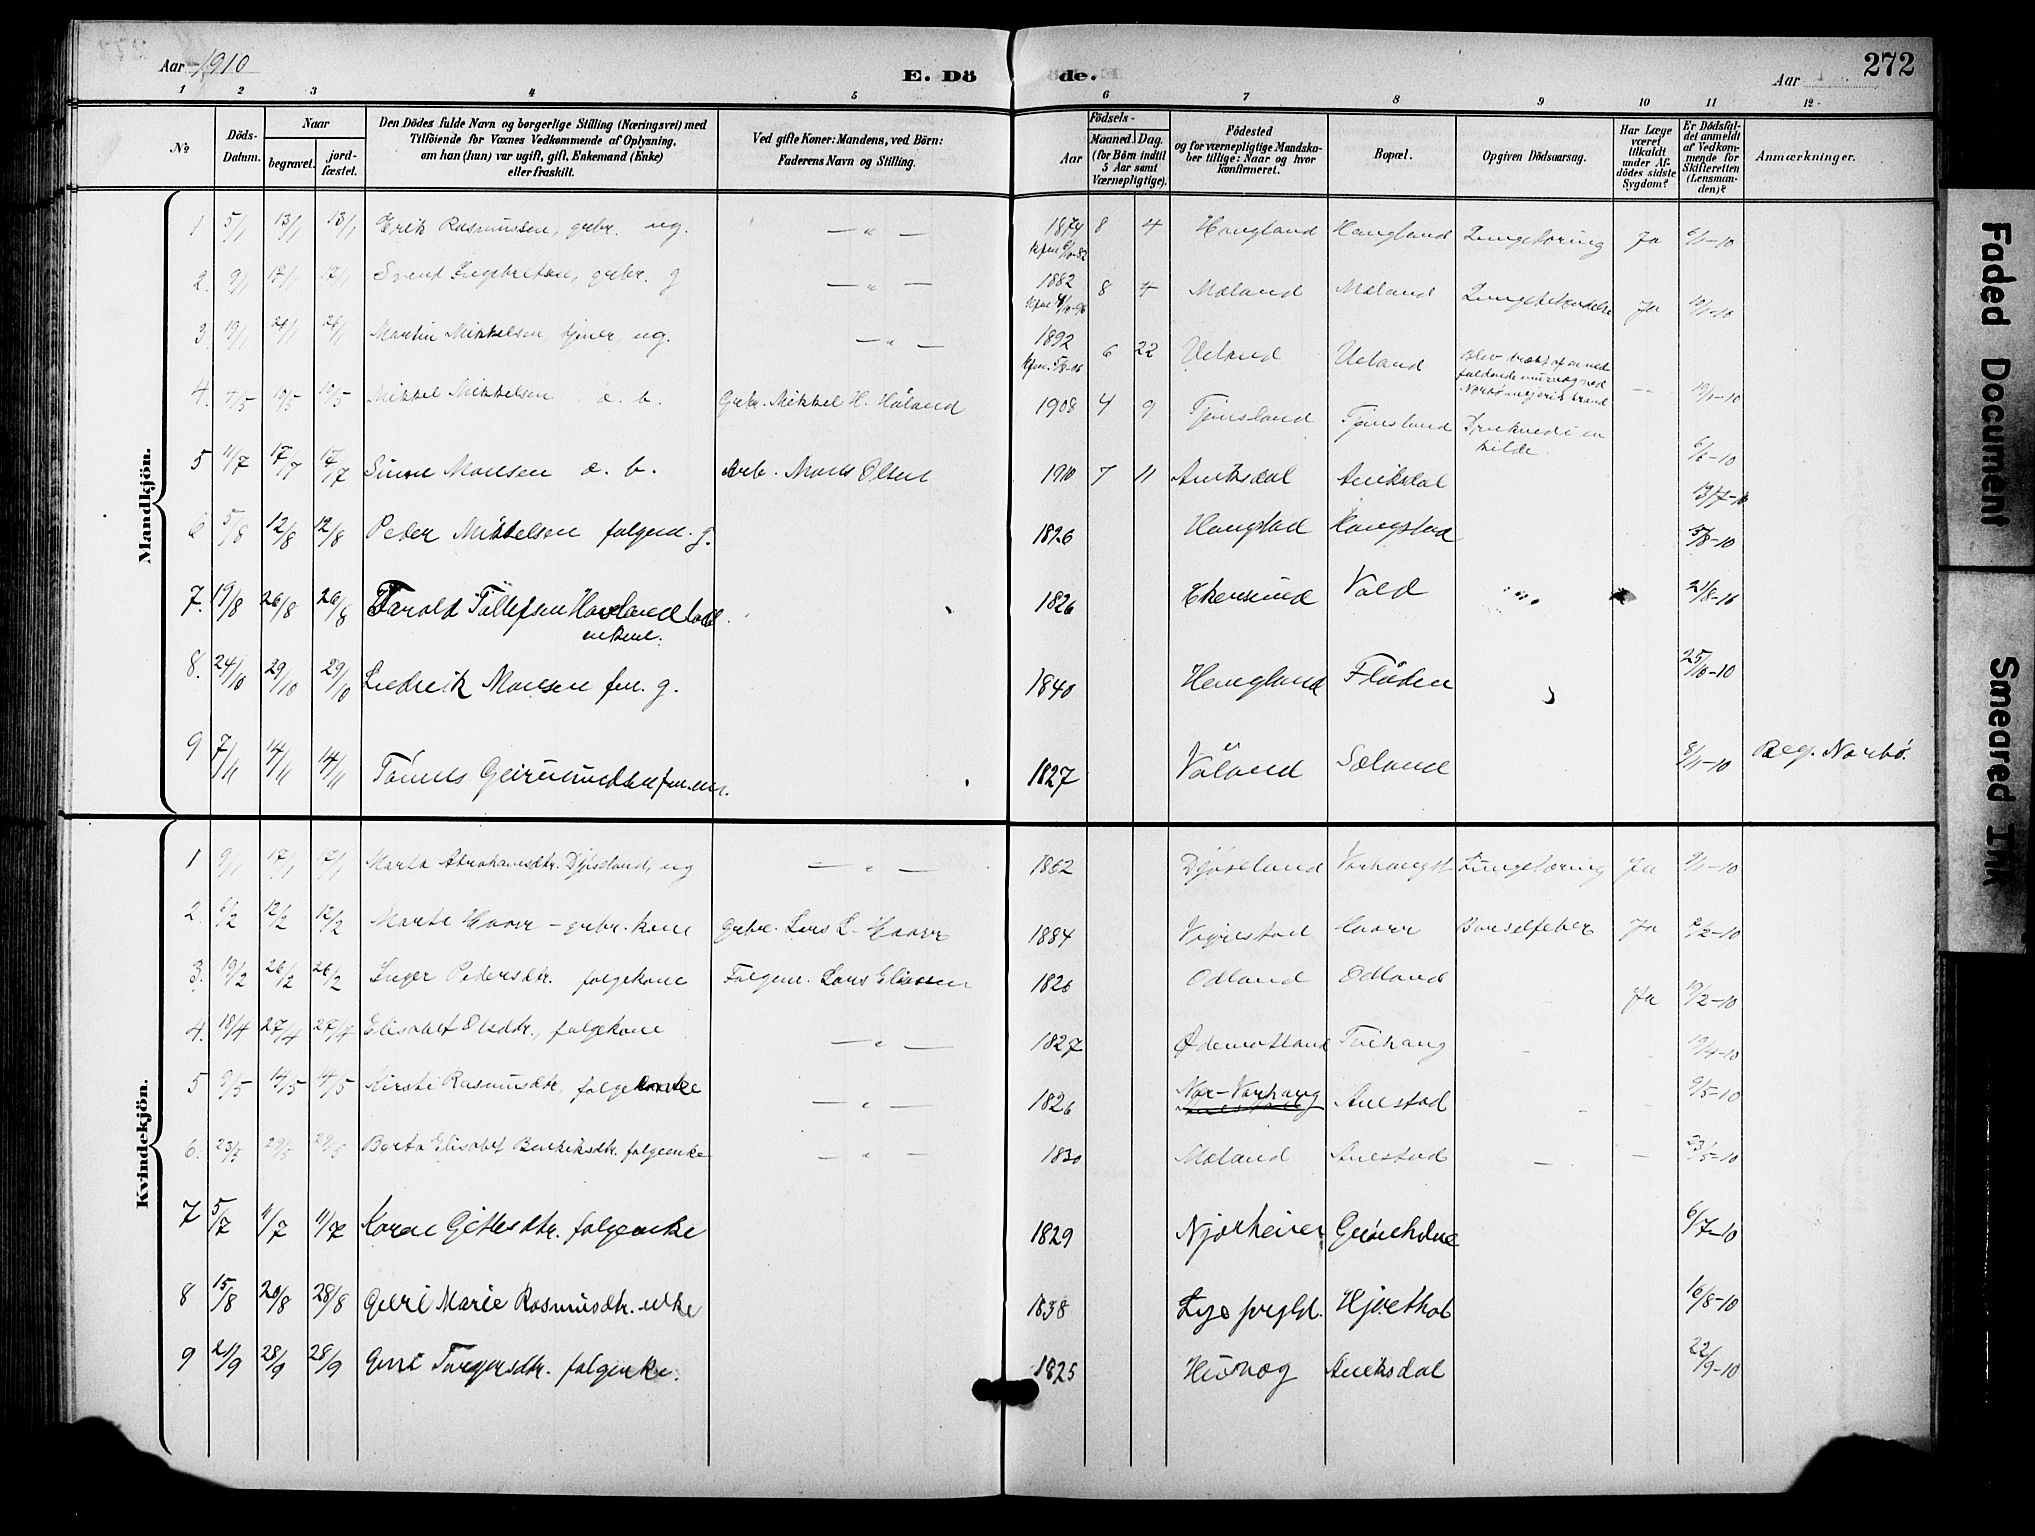 Aar 1910
E. Döde.
Aar
272
1 2 3 4 5 6 7 8 9 10 11 12
№
Döds-Datum.
Naar
begravet.
jordfæstet.
Den Dödes fulde Navn og borgerlige Stilling (Næringsvei) med
Tilföiende for Voxnes Vedkommende af Oplysning,
om han (hun) var ugift, gift, Enkemand (Enke)
eller fraskilt.
Ved gifte Koner: Mandens, ved Börn:
Faderens Navn og Stilling.
Födsels-
Aar
Maaned.
Dag.
(for Börn indtil
5 Aar samt
Værnepligtige).
Födested
og for værnepligtige Mandskaber tillige: Naar og hvor
konfirmeret.
Bopæl.
Opgiven Dödsaarsag.
Har Læge
været
tilkaldt
under Afdödes sidste
Sygdom?
Er Dödsfaldet anmeldt
af Vedkommende for
Skifteretten
(Lensmanden)?
Anmærkninger.
Mandkjön.
1 5/1 13/1 13/1 Erik Rasmussen, grbr. ug. — „ — 1874 8 4 Haugland Haugland Lungetæring Ja 6/1-10
2. 9/1 17/1 17/1 Svend Ingebretsen, grbr. g — „ — 1882 8 4 Mæland Mæland Ja 10/1-10
3. 19/1 26/1 Martin Mikkelsen tjener, ug. — „ — 1892 6 22 Ueland Ueland -- 19/1-10
4. 10/5 10/5 Mikkel Mikkelsen b. Grbr. Mikkel H. Håland 1908 4 9 Tjensland Tjensland Druknede i en kilde. 6/6-10
5 11/7 17/7 17/7 Simon Monsen b. Arb. Mons Olsen 1910 7 11 Aniksdal Aniksdal 13/7-10
6 5/8 12/8 12/8 Peder Mikkelsen folgem. g. 1826 Haugstad Haugstad 5/8-10
7. 19/8 26/8 26/8 Tarald Tollefsen Hovland enkem. 1826 Ekersund Vold
8. 24/10 29/10 29/10 Fredrik Monsen fm. g. 1840 Haugland Flåden 25/10-10
9 7/11 14/11 14/11 Tönnes Geirmundsen fm. em. 1827 Våland Sæland 8/11-10 Beg. Nærbø.
Kvindekjön.
1 9/1 17/1 17/1 Marta Abrahamsdtr. Djøseland, ug — „ — 1862 Djøseland Varhaugst Lungetæring Ja 9/1-10
2. 12/2 12/2 Marta Haarr - grbr. kone Grbr. Lars L. Haarr 1884 Vigrestad Haarr Barselfeber Ja 6/2-10
3. 19/2 26/2 26/2 Inger Pedersdtr. folgekone Folgem. Lars Eliassen 1826 Odland Odland Ja 19/2-10
4. 18/4 27/4 27/4 Elisabet Olsdtr., folgekone — „ — 1827 Ødemotland Tuehaug 19/4-10
5 9/5 14/5 14/5 Kirsti Rasmusdtr. folgeenke — „ — 1826 Nor-Varhaug Auestad 9/5-10
6. 23/5 29/5 29/5 Berta Elisabet folgeenke — „ — 1830 Mæland Auestad — — 23/5-10
7 5/7 11/7 11/7 Karen Gitlesdtr. folgeenke 1829 Njærheim 6/7-10
8 15/8 20/8 28/8 Guri Marie Rasmusdtr. enke 1838 Lye prgld. 16/8-10
9 21/9 28/9 28/9 Guri Torgersdtr. folgenke. 1825 Husvog Aniksdal 22/9-10
Faded Document
Smeared Ink